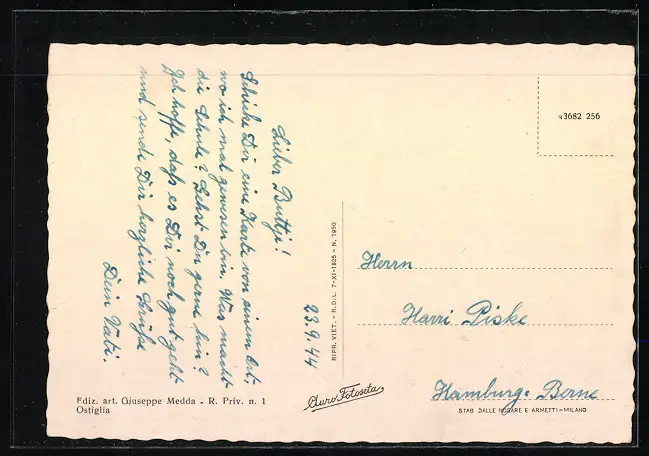 Lieber Buttje!
Schicke Dir eine Karte von einem Ort,
wo ich mal gewesen bin. Was macht
die Schule? Gehst Du gerne hin?
Ich hoffe, daß es Dir noch gut geht
und sende Dir herzliche Grüße
Dein Vati.
23.9.44
RIPR. VIET. - R.D.L. 7-XI-1925 - N. 1950
43682 256
Herrn
Harri Piske
Hamburg-Berne
Ediz. art. Giuseppe Medda - R. Priv. n. 1
Ostiglia
Auro Fotoseta
STAB DALLE NOGARE E ARMETTI-MILANO